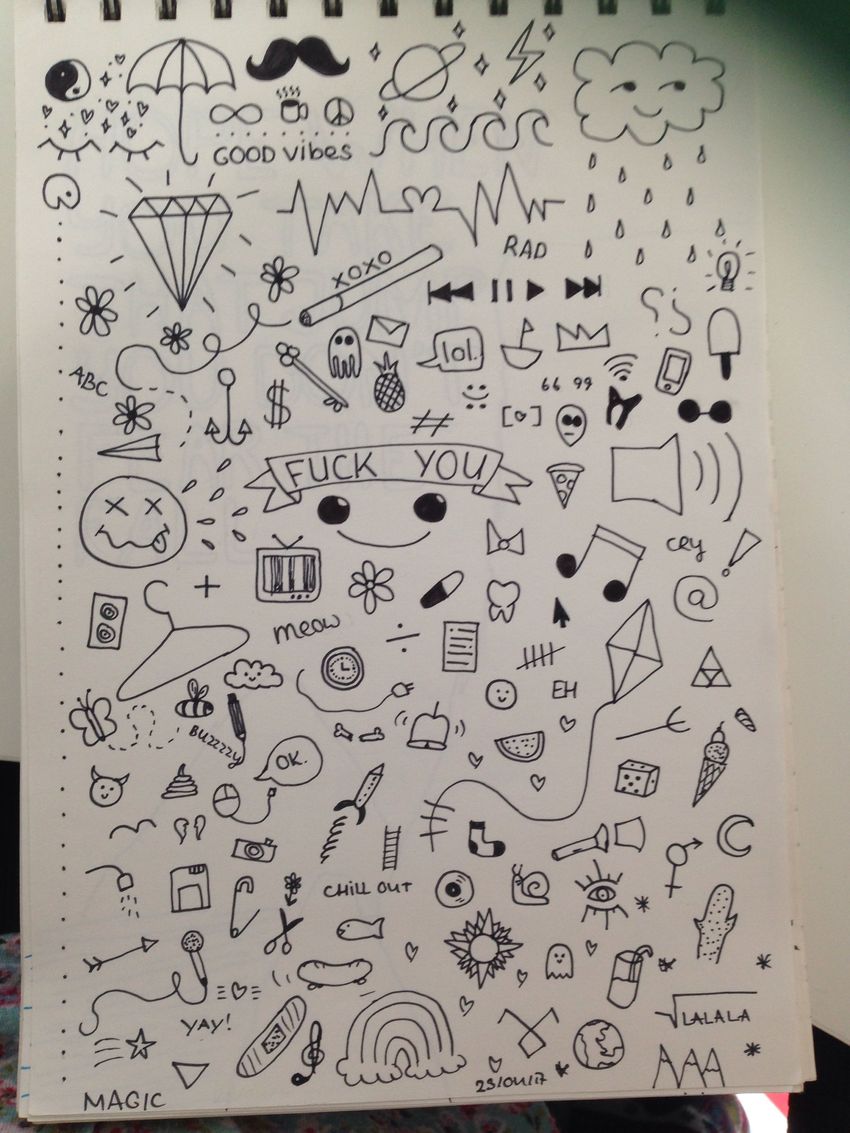 GOOD vibes
RAD
XOXO
lol.
ABC
$
66 99
#
[♡]
FUCK YOU
cry
!
@
+
meow
÷
EH
BUZZZZY
OK.
CHILL OUT
YAY!
√LALALA
23/01/17
MAGIC